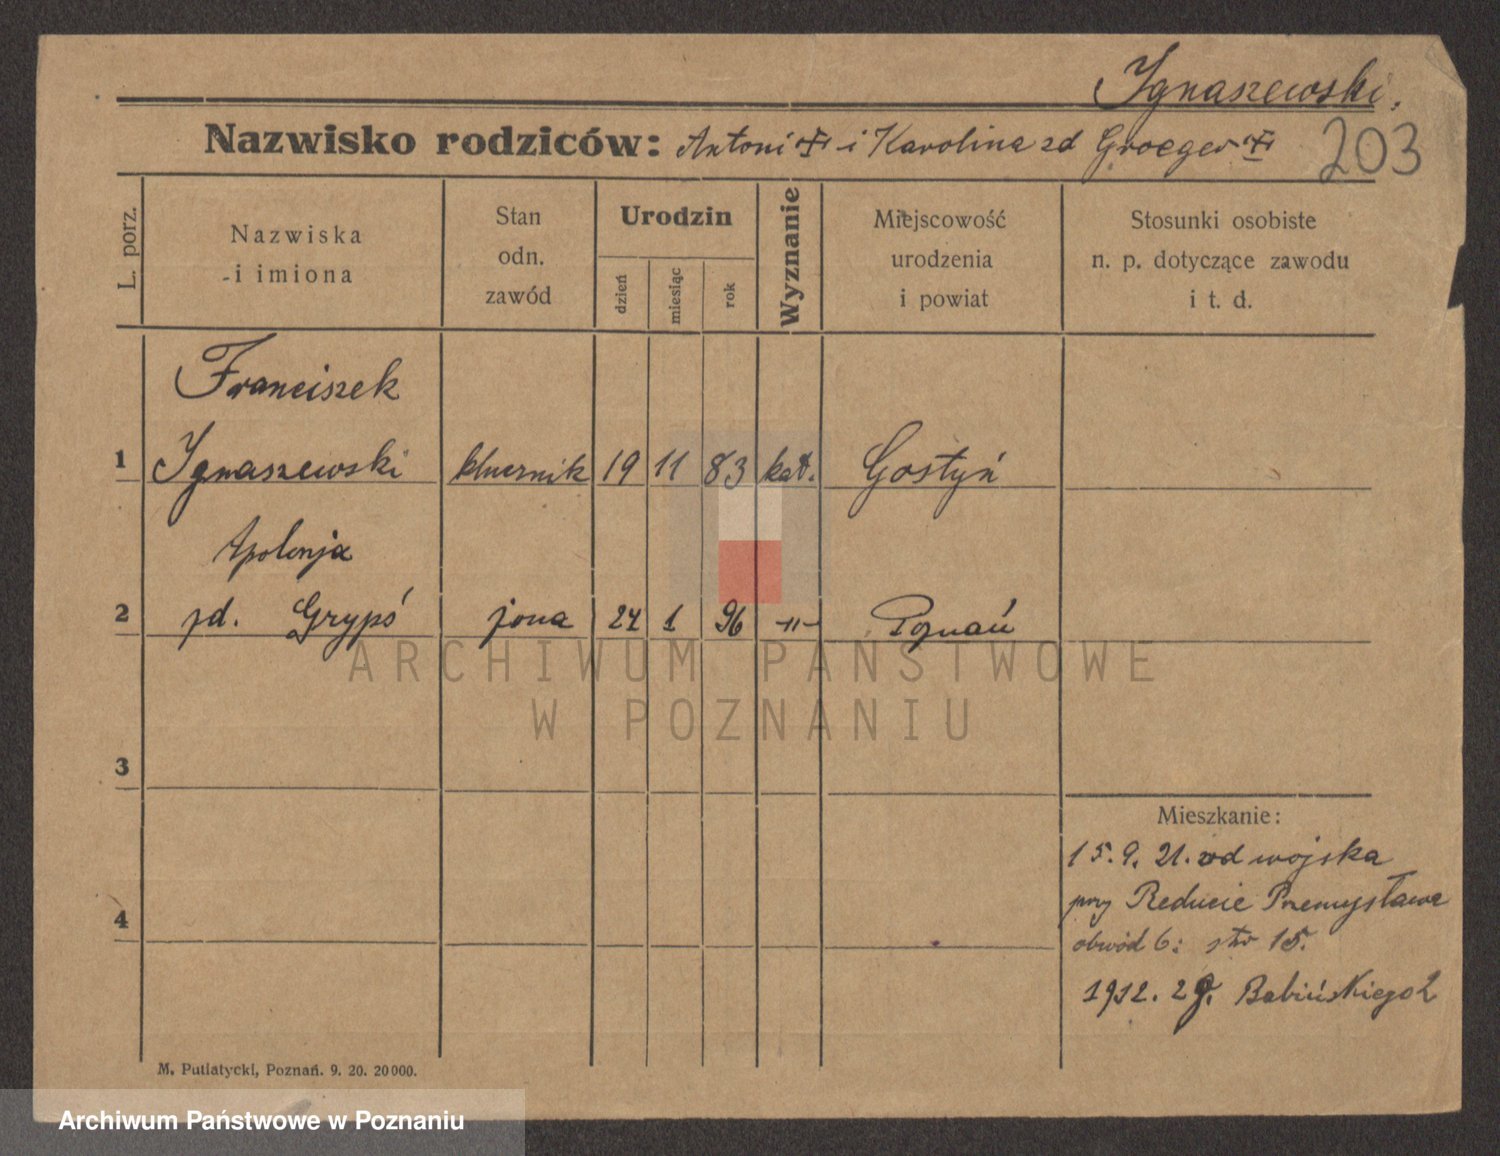 Ignaszewski.
Nazwisko rodziców: Antoni i Karolina zd Groeger
203
L. porz.
Nazwiska i imiona
Stan odn. zawód
Urodzin
dzień
miesiąc
rok
Wyznanie
Miejscowość urodzenia i powiat
Stosunki osobiste n. p. dotyczące zawodu i t. d.
Franciszek
1 Ignaszewski 19 11 83 kat. Gostyń
Apolonja
2 zd. Gryps żona 24 1 96 -"- Poznań
3
4
Mieszkanie:
15. 9. 21. od wojska
przy Reducie Przemysława
obwód 6: str 15.
Babińskiego 2
M. Putiatycki, Poznań. 9. 20. 20000.
ARCHIWUM PAŃSTWOWE
W POZNANIU
Archiwum Państwowe w Poznaniu